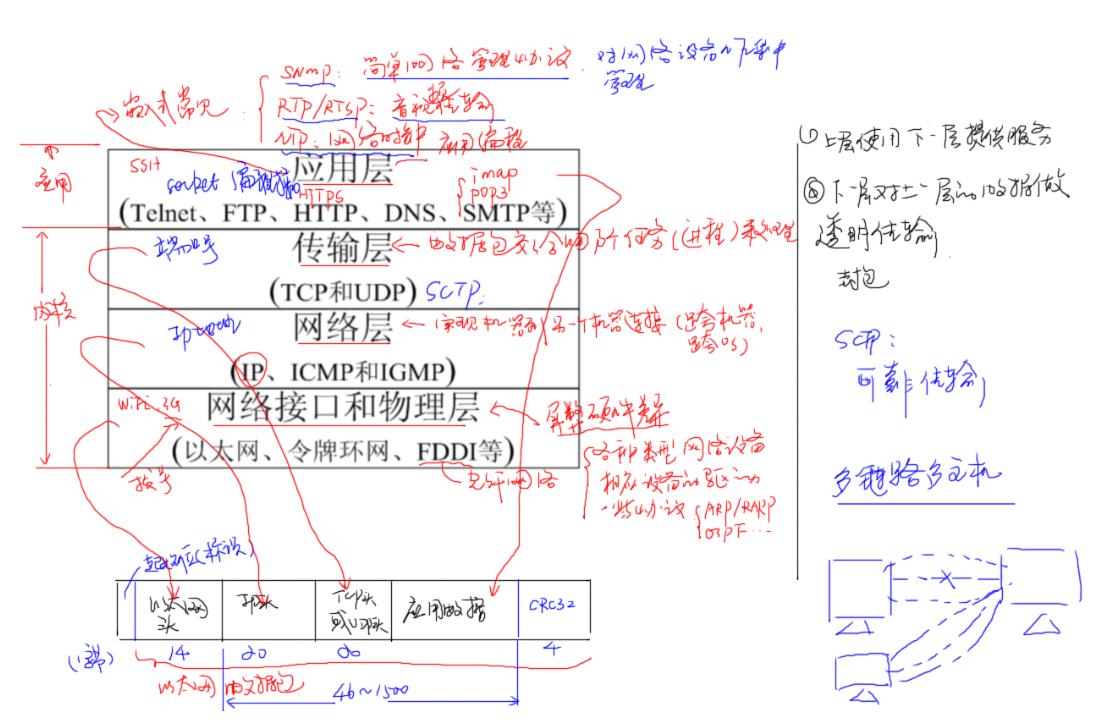 SNMP: 简单网络管理协议. 对网络设备集中
管理
嵌入式常见
RTP/RTSP: 音视频传输
NTP: 网络时钟 应用编程
应用
SSH
应用层
socket 编程接口
HTTPS
imap
pop3
(Telnet、FTP、HTTP、DNS、SMTP等)
端口号
传输层
数据包交给哪个任务(进程)来处理
(TCP和UDP) SCTP:
内核
网络层
实现机器到另一个机器连接 (跨机器,
跨OS)
(IP、ICMP和IGMP)
WiFi 3G
网络接口和物理层
屏蔽硬件差异
(以太网、令牌环网、FDDI等)
拨号
光纤网络
各种类型网络设备
相应设备的驱动
一些协议 ARP/RARP
OSPF ...
① 上层使用下一层提供服务
② 下一层对上一层的数据做
透明传输
封包
SCTP:
可靠传输
多链路多主机
以太网
头
IP头
TCP头
或UDP头
应用数据
CRC32
(字节)
14
20
20
4
以太网 数据包
46~1500